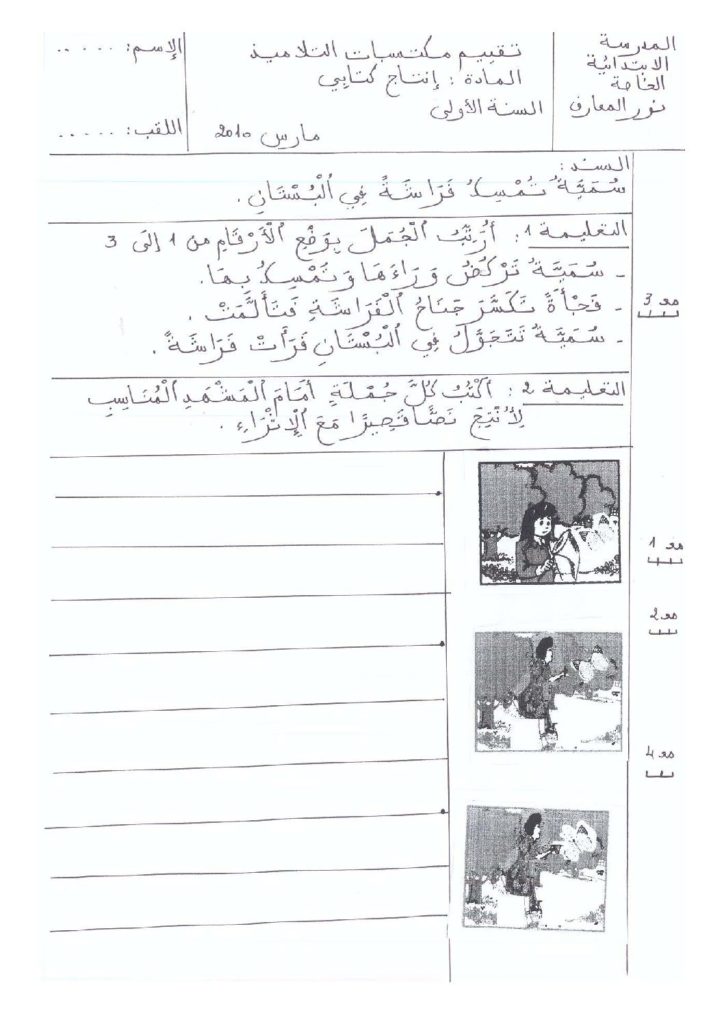 المدرسة
الابتدائية
الخاصة
نور المعارف
تقييم مكتسبات التلاميذ
المادة : إنتاج كتابي
السنة الأولى
مارس 2010
الإسم: . . . . . .
اللقب: . . . . .
السند:
سُمَيَّةُ تُمْسِكُ فَرَاشَةً فِي اَلْبُسْتَانِ .
التعليمة 1 : أُرَتِّبُ اَلْجُمَلَ بِوَضْعِ اَلْأَرْقَامِ من 1 إِلَى 3
- سُمَيَّةُ تَرْكُضُ وَرَاءَهَا وَتُمْسِكُ بِهَا.
- فَجْأَةً تَكَسَّرَ جَنَاحُ اَلْفَرَاشَةِ فَتَأَلَّمَتْ .
- سُمَيَّةُ تَتَجَوَّلُ فِي اَلْبُسْتَانِ فَرَأَتْ فَرَاشَةً .
مع 3
التعليمة 2 : أَكْتُبُ كُلَّ جُمْلَةٍ أَمَامَ اَلْمَشْهَدِ اَلْمُنَاسِبِ
لِأُنْتِجَ نَصًّا قَصِيرًا مَعَ اَلْإِثْرَاءِ .
مع 1
مع 2
مع 4